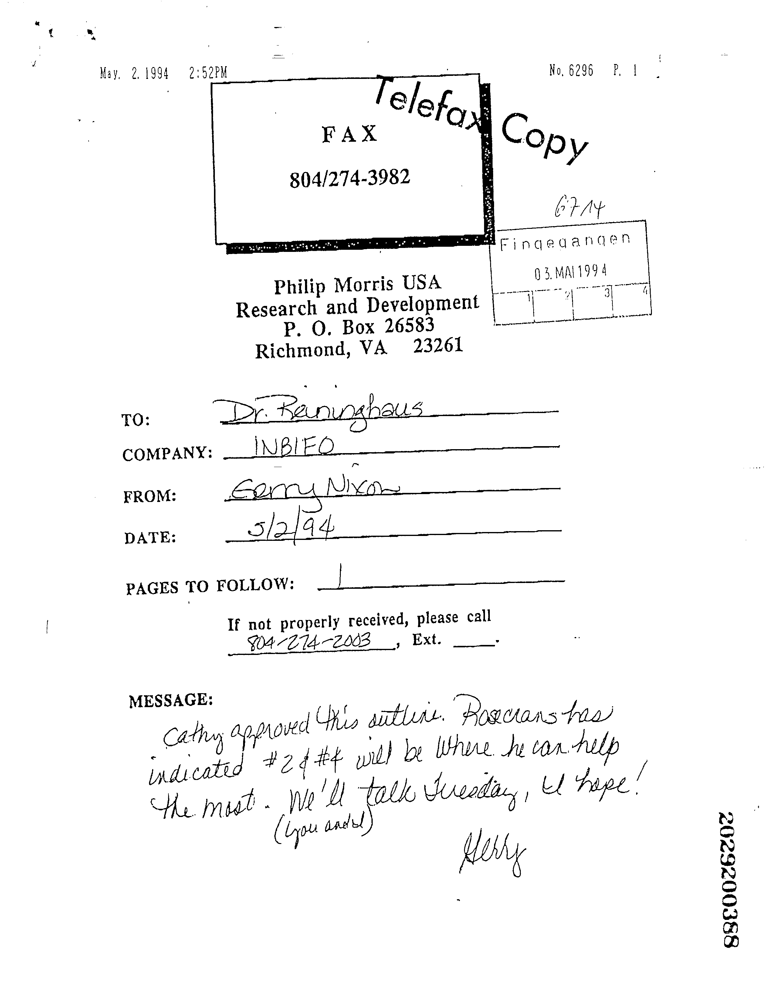 May. 2. 1994 2:52PM No. 6296 P. 1
Telefax Copy
FAX
804/274-3982
6714
Eingegangen
03. MAI 1994
1 2 3 4
Philip Morris USA
Research and Development
P. O. Box 26583
Richmond, VA 23261
TO: Dr. Reininghaus
COMPANY: INBIFO
FROM: Gerry Nixon
DATE: 5/2/94
PAGES TO FOLLOW: 1
If not properly received, please call
804-274-2003, Ext. ____.
MESSAGE:
Cathy approved this outline. Rosecrans has
indicated #2 & #4 will be where he can help
the most. We'll talk Tuesday, I hope!
(you and I)
Gerry
2029200388